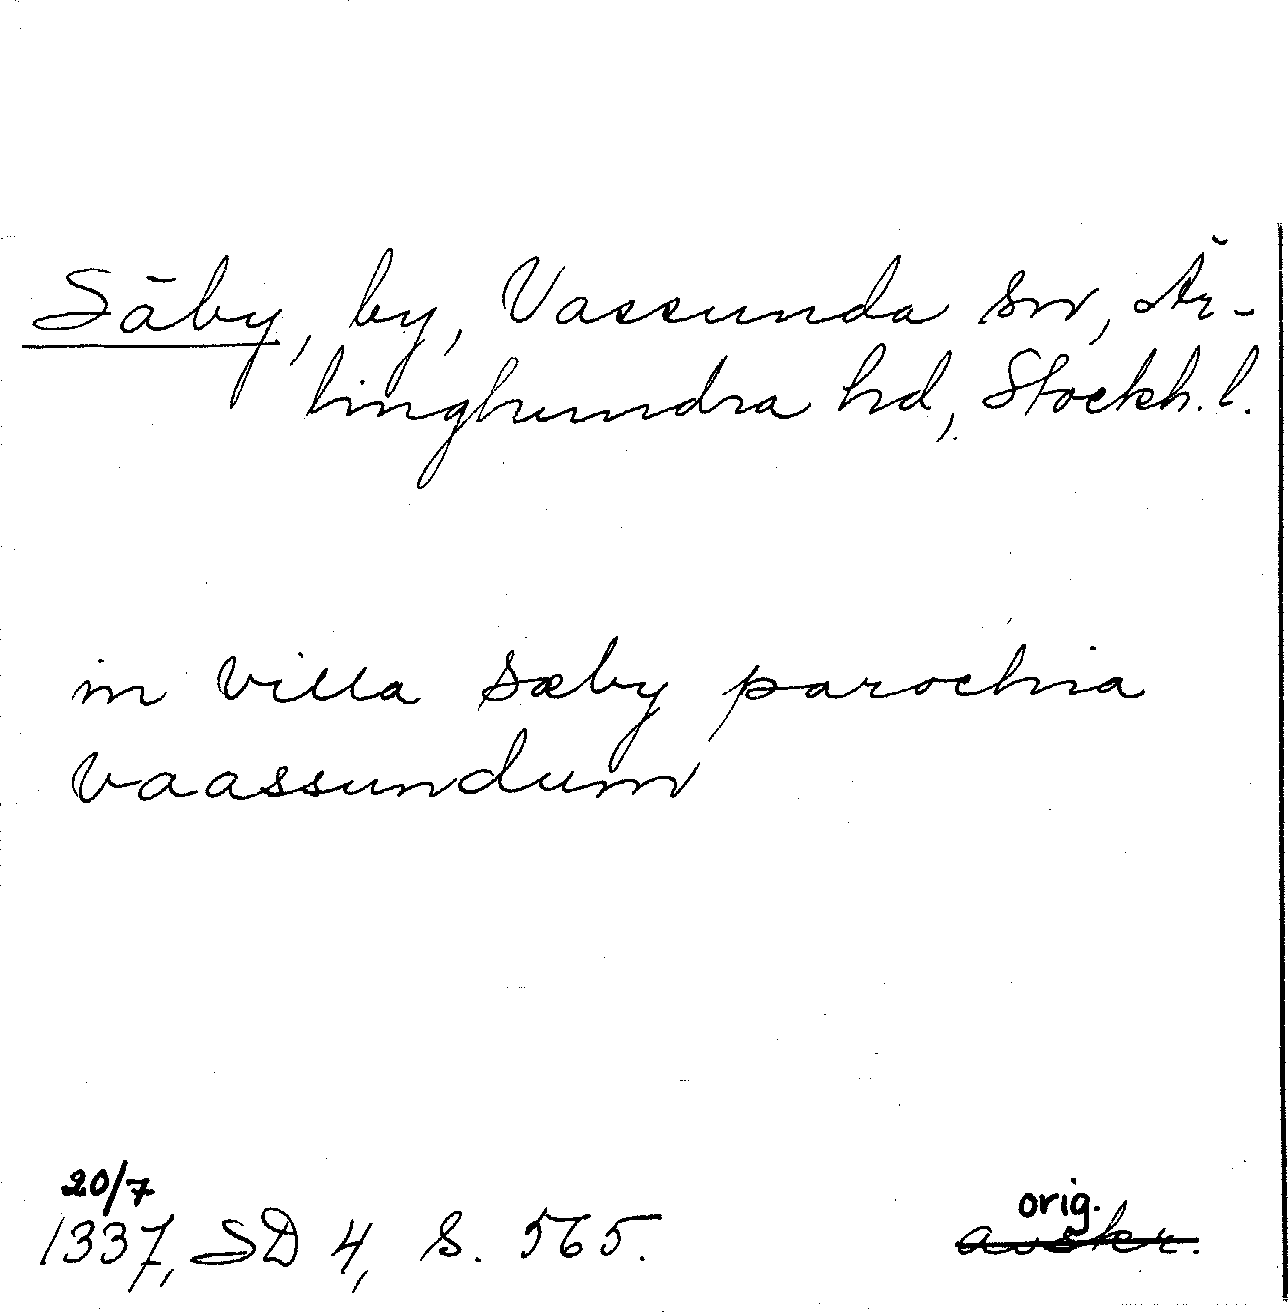 Säby, by, Vassunda sn, Är-
linghundra hd, Stockh. l.
in villa sæby parochia
vaassundum
20/7
1337, SD 4, s. 565.
orig.
avskr.